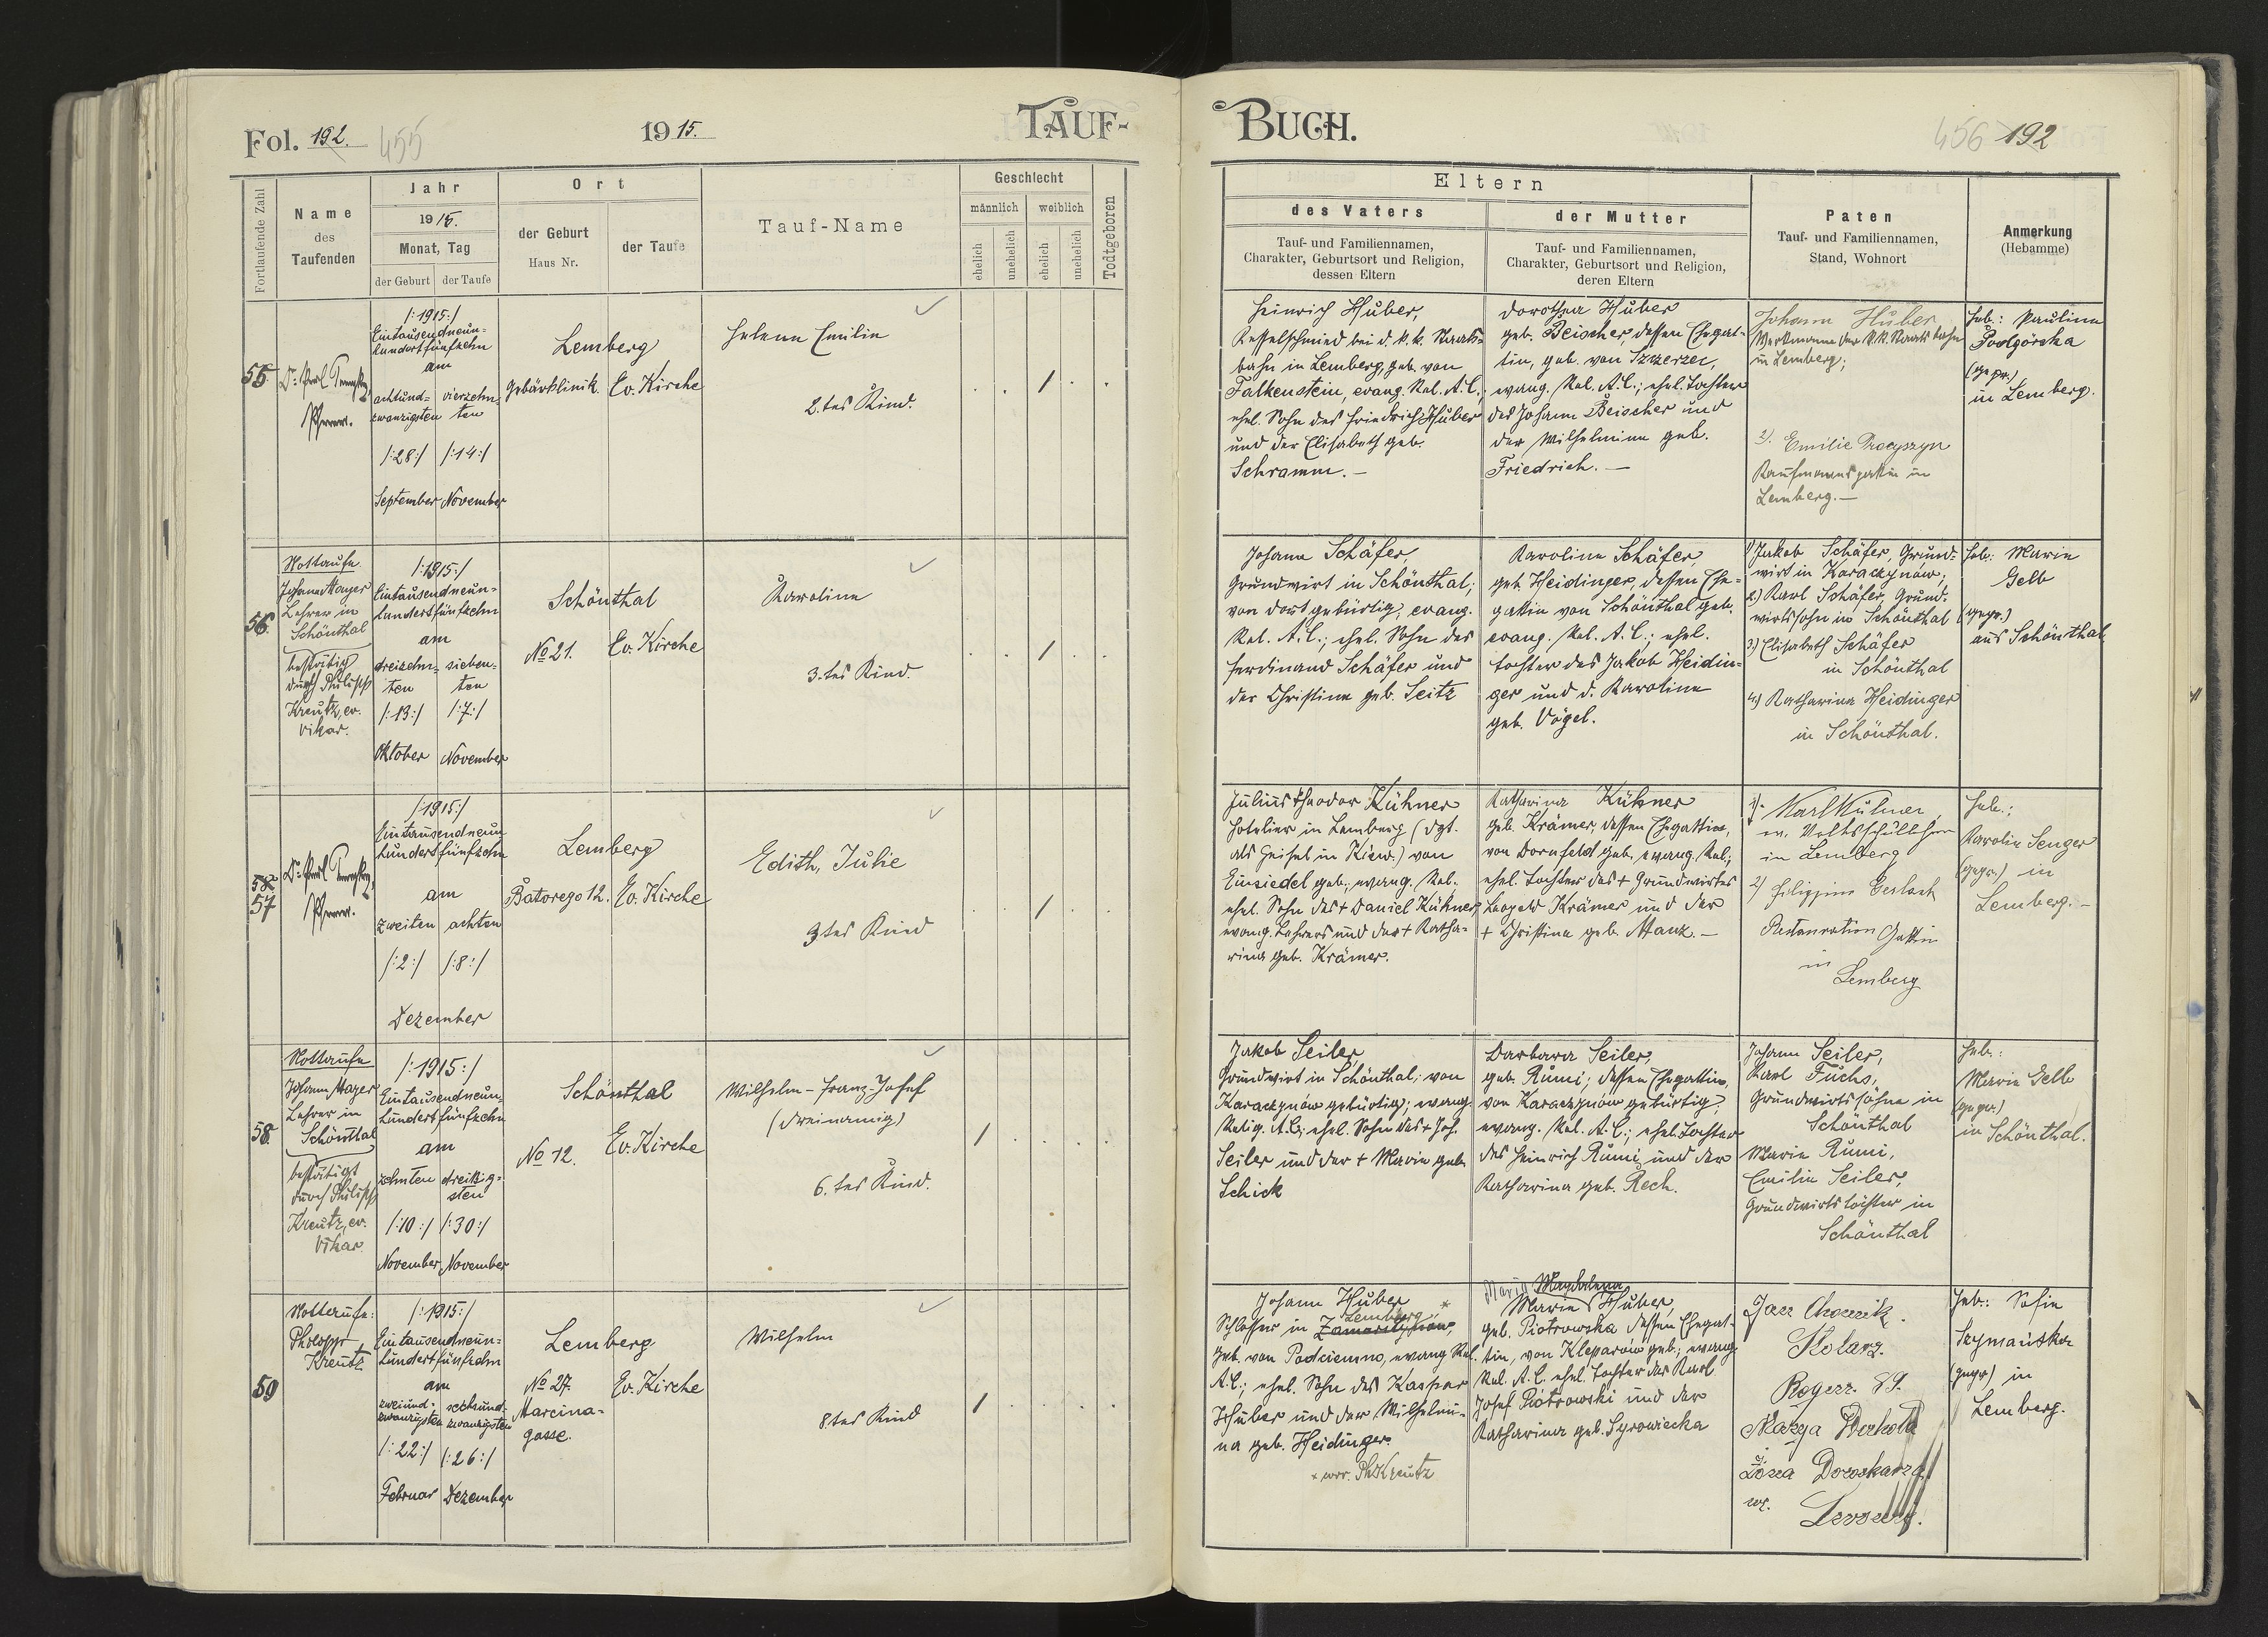 Fol. 192. 455
1915.
TAUF-
Fortlaufende Zahl
Name
des
Taufenden
Jahr
1915.
Monat, Tag
der Geburt
der Taufe
Ort
der Geburt
Haus Nr.
der Taufe
Tauf-Name
Geschlecht
männlich
weiblich
ehelich
unehelich
ehelich
unehelich
Todtgeboren
55.
Pfarrer.
/:1915:/
Eintausendneun-
hundertfünfzehn
am
achtund-
zwanzigsten
/:28:/
September
vierzehn-
ten
/:14:/
November
Lemberg
Gebärklinik
Ev. Kirche
Helene Emilie
2.tes Kind.
/
56.
Nottaufe
Johann Mayer
Lehrer in
Schönthal
bestätigt
durch Philipp
Kreutz, ev.
Vikar.
/:1915:/
Eintausendneun-
hundertfünfzehn
am
dreizehn-
ten
/:13:/
Oktober
sieben-
ten
/:7:/
November
Schönthal
No 21.
Ev. Kirche
Karoline
3.tes Kind.
/
58
57
Pfarrer.
/:1915:/
Eintausendneun-
hundertfünfzehn
am
zweiten
achten
/:2:/
/:8:/
Dezember
Lemberg
Batorego 12.
Ev. Kirche
Edith, Julie
3tes Kind
/
58.
Nottaufe
Johann Mayer
Lehrer in
Schönthal
bestätigt
durch Philipp
Kreutz, ev.
Vikar
/:1915:/
Eintausendneun-
hundertfünfzehn
am
zehnten
/:10:/
November
dreißig-
sten
/:30:/
November
Schönthal
No 12.
Ev. Kirche
Wilhelm-Franz-Josef
(dreinamig)
6.tes Kind.
/
59
Nottaufe:
Philipp
Kreutz
/:1915:/
Eintausendneun-
hundertfünfzehn
am
zweiund-
zwanzigsten
/:22:/
Februar
sechsund-
zwanzigsten
/:26:/
Dezember
Lemberg
No 27.
Marcina-
gasse.
Ev. Kirche
Wilhelm
8.tes Kind
/
BUCH.
456 192
Eltern
des Vaters
Tauf- und Familiennamen,
Charakter, Geburtsort und Religion,
dessen Eltern
der Mutter
Tauf- und Familiennamen,
Charakter, Geburtsort und Religion,
deren Eltern
Paten
Tauf- und Familiennamen,
Stand, Wohnort
Anmerkung
(Hebamme)
Heinrich Huber,
Kesselschmied bei d. k. k. Staats-
bahn in Lemberg, geb. von
Falkenstein, evang. Rel. A.C.,
ehel. Sohn des Friedrich Huber
und der Elisabeth geb.
Schramm. —
Dorothea Huber
geb. Beischer, dessen Ehegat-
tin, geb. von Szczerzec,
evang. Rel. A.C.; ehel. Tochter
des Johann Beischer und
der Wilhelmine geb.
Friedrich. —
Johann Huber
Werkmann der k.k. Staatsbahn
in Lemberg;
2). Emilie
Kaufmannsgattin in
Lemberg. —
Heb.: Pauline
Podgórska
(gepr.)
in Lemberg.
Johann Schäfer,
Grundwirt in Schönthal;
von dort gebürtig, evang.
Rel. A.C.; ehel. Sohn des
Ferdinand Schäfer und
der Christine geb. Seitz
Karoline Schäfer,
geb. Heidinger, dessen Ehe-
gattin von Schönthal geb.
evang. Rel. A.C.; ehel.
Tochter des Jakob Heidin-
ger und d. Karoline
geb. Vögel.
1) Jakob Schäfer, Grund-
wirt in Karaczynów;
2) Karl Schäfer, Grund-
wirtssohn in Schönthal
3) Elisabeth Schäfer
in Schönthal
4) Katharina Heidinger
in Schönthal.
Heb: Marie
Gelb
(gepr.)
aus Schönthal
Julius Theodor Kühner
Hotelier in Lemberg (dzt.
als Geisel in Kiew.) von
Einsiedel geb., evang. Rel.
ehel. Sohn des + Daniel Kühner,
evang. Lehrers und der + Katha-
rina geb. Krämer.
Katharina Kühner
geb. Krämer, dessen Ehegattin,
von Dornfeld geb. evang. Rel.;
ehel. Tochter des + Grundwirtes
Leopold Krämer und der
+ Christine geb. Manz. —
1). Karl Kühner
in Lemberg
2) Filippine Gerlach
Gattin
in
Lemberg
Heb.:
Karolin Senger
(gepr.) in
Lemberg. —
Jakob Seiler,
Grundwirt in Schönthal; von
Karaczynów gebürtig; evang.
Relig. A.C.; ehel. Sohn des + Joh.
Seiler und der + Marie geb.
Schick
Barbara Seiler,
geb. Rumi; dessen Ehegattin,
von Karaczynów gebürtig,
evang. Rel. A.C.; ehel. Tochter
des Heinrich Rumi und der
Katharina geb. Rech.
Johann Seiler,
Karl Fuchs,
Grundwirtssöhne in
Schönthal
Marie Rumi,
Emilie Seiler,
Grundwirtstöchter in
Schönthal
Heb.:
Marie Gelb
(gepr.)
in Schönthal.
Johann Huber
Lemberg *
Schlosser in
geb. von Podciemno, evang Rel.
A.C.; ehel. Sohn des Kaspar
Huber und der Wilhelmi-
na geb. Heidinger.
* corr. Ph. Kreutz
Maria Magdalena
Marie Huber,
geb. Piotrowska dessen Ehegat-
tin, von Kleparow geb.; evang.
Rel. A.C. ehel. Tochter des Karl
Josef Piotrowski und der
Katharina geb. Syrowiecka
Jan
89.
Marya
we.
Heb.: Sofie
Szymańska
(gepr) in
Lemberg.